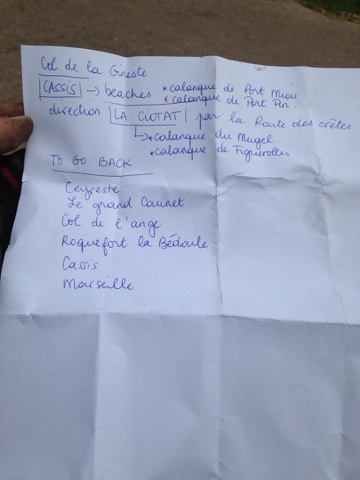 Col de la Gineste
CASSIS → beaches * calanque de Port Miou
* calanque de Port Pin.
direction LA CIOTAT par la Route des crêtes
↳ * calanque du Mugel
* calanque de Figuerolles
TO GO BACK
Ceyreste
Le grand Caunet
Col de l'ange
Roquefort la Bédoule
Cassis
Marseille